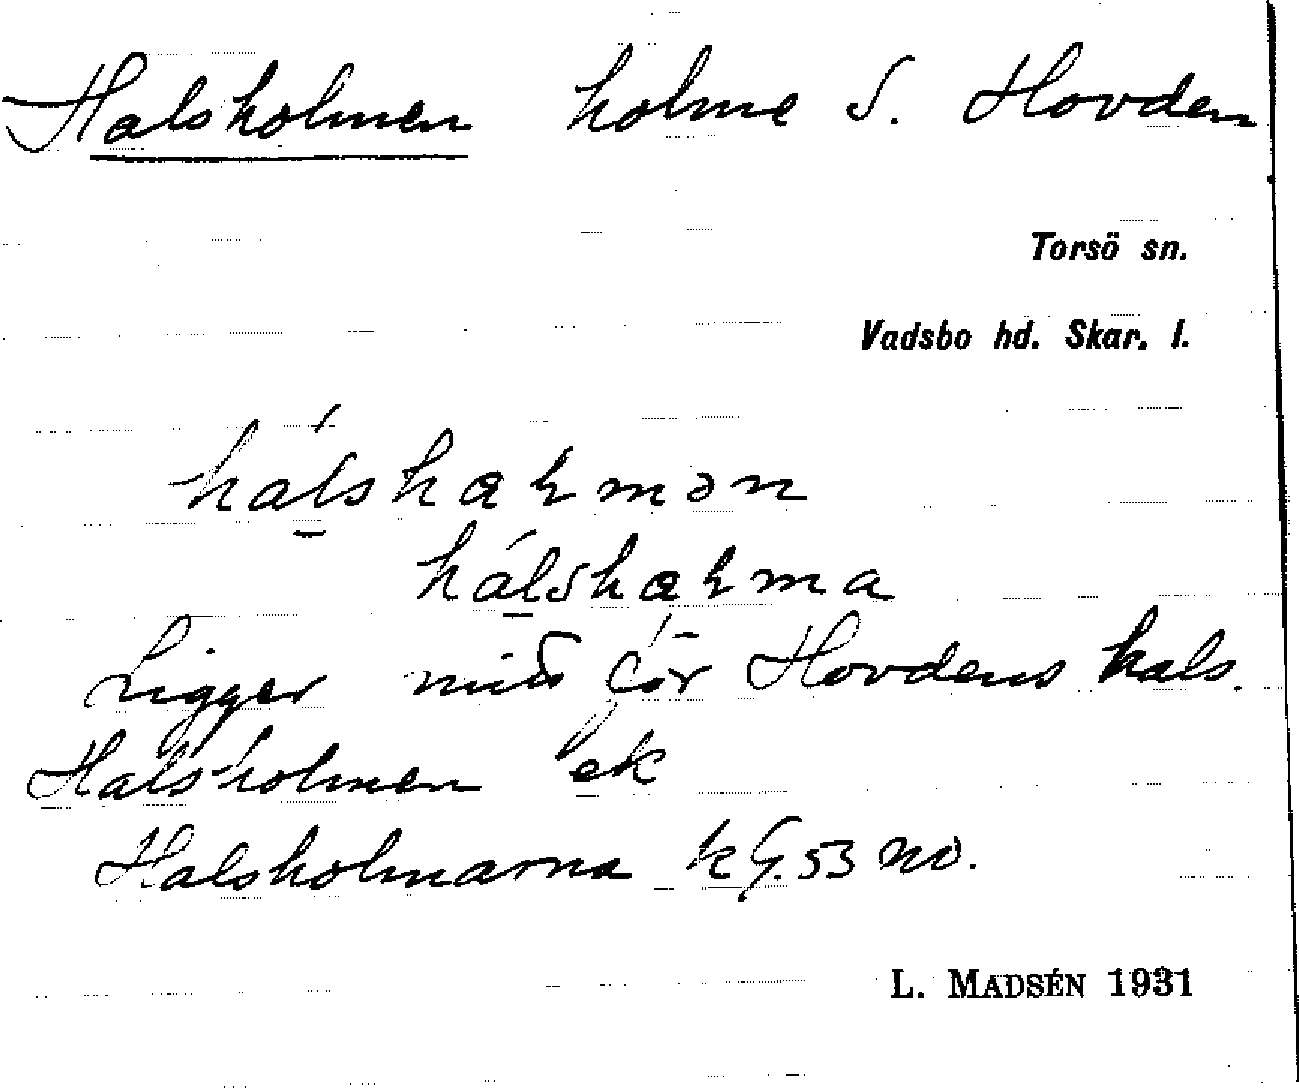 Halsholmen holme S. Hovden
Torsö sn.
Vadsbo hd. Skar. l.
hálshaɫmən
hálshaɫma
Ligger mitt för Hovdens hals.
Halsholmen ek
Halsholmarna kG.53 NO.
L. MADSÉN 1931